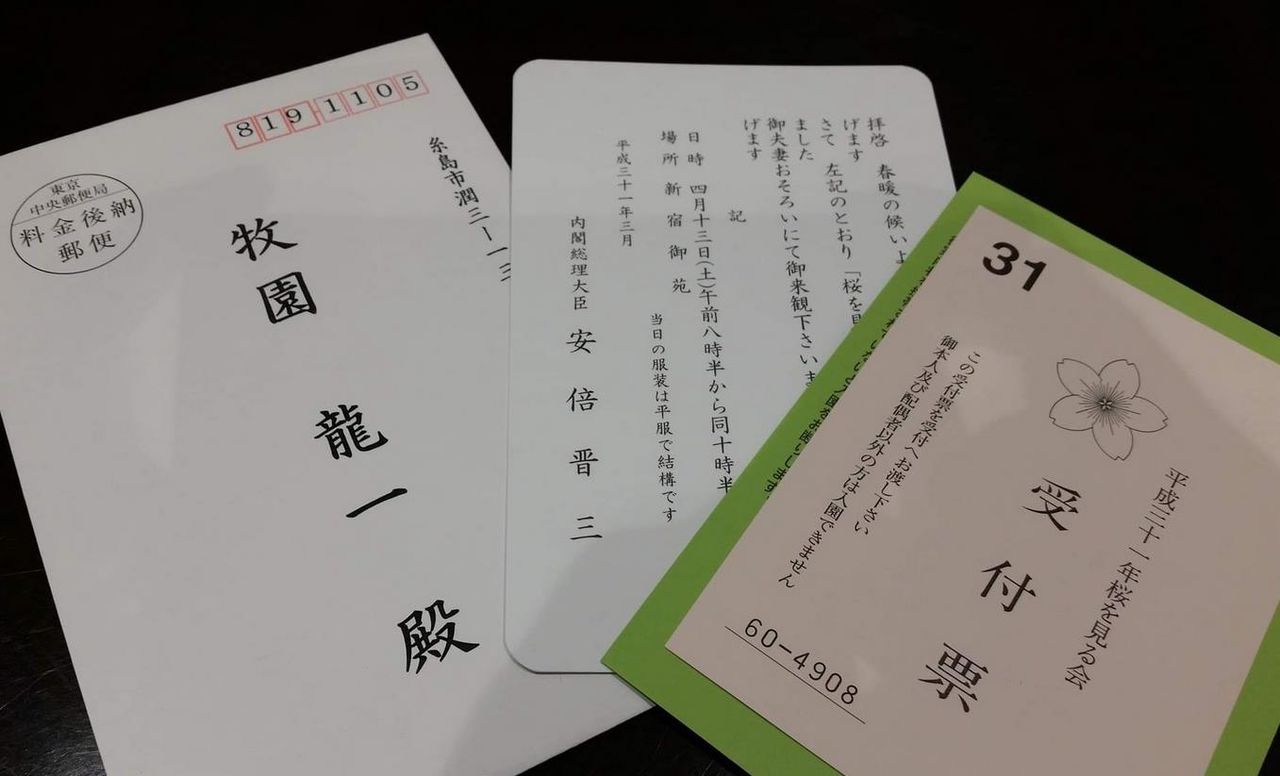 8191105
糸島市潤三ー一三
牧園 龍一 殿
東京
中央郵便局
料金後納
郵便
拝啓 春暖の候いよ
げます
さて 左記のとおり 「桜を見
ました
御夫妻おそろいにて御来観下さいま
げます
記
日時 四月十三日(土)午前八時半から同十時半
場所 新宿御苑
当日の服装は平服で結構です
平成三十一年三月
内閣総理大臣 安倍晋三
31
平成三十一年桜を見る会
受付票
この受付票を受付へお渡し下さい
御本人及び配偶者以外の方は入園できません
60-4908